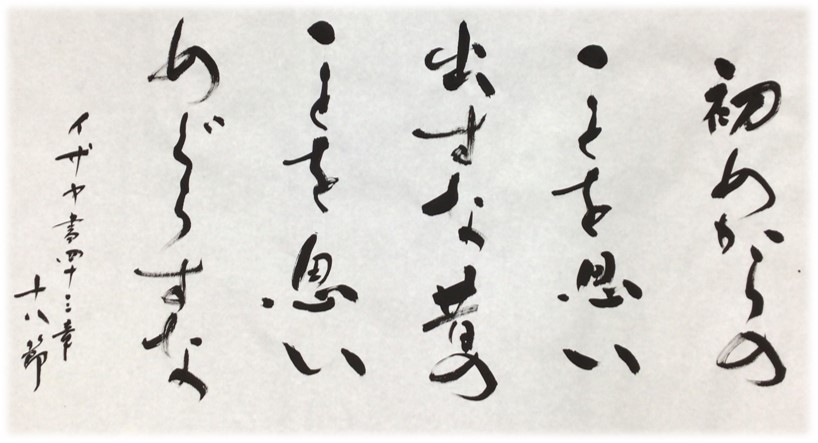 初めからの
ことを思い
出すな昔の
ことを思い
めぐらすな
イザヤ書四十三章
十八節